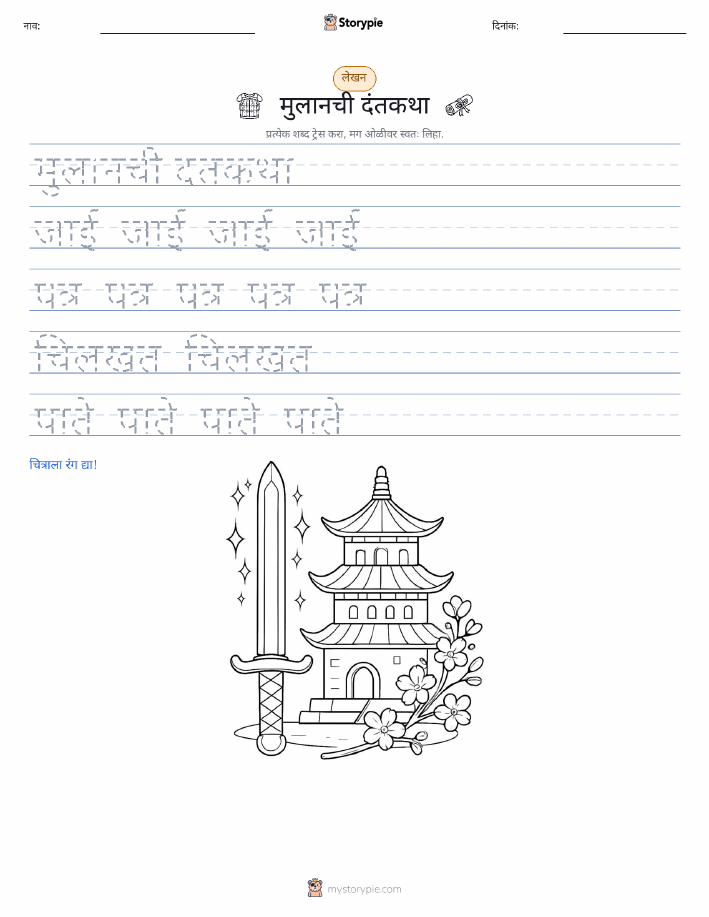 नाव:
Storypie
दिनांक:
लेखन
मुलानची दंतकथा
प्रत्येक शब्द ट्रेस करा, मग ओळीवर स्वतः लिहा.
मुलानची दंतकथा
जाई जाई जाई जाई
पत्र पत्र पत्र पत्र पत्र
चिलखत चिलखत
पाते पाते पाते पाते
चित्राला रंग द्या!
mystorypie.com